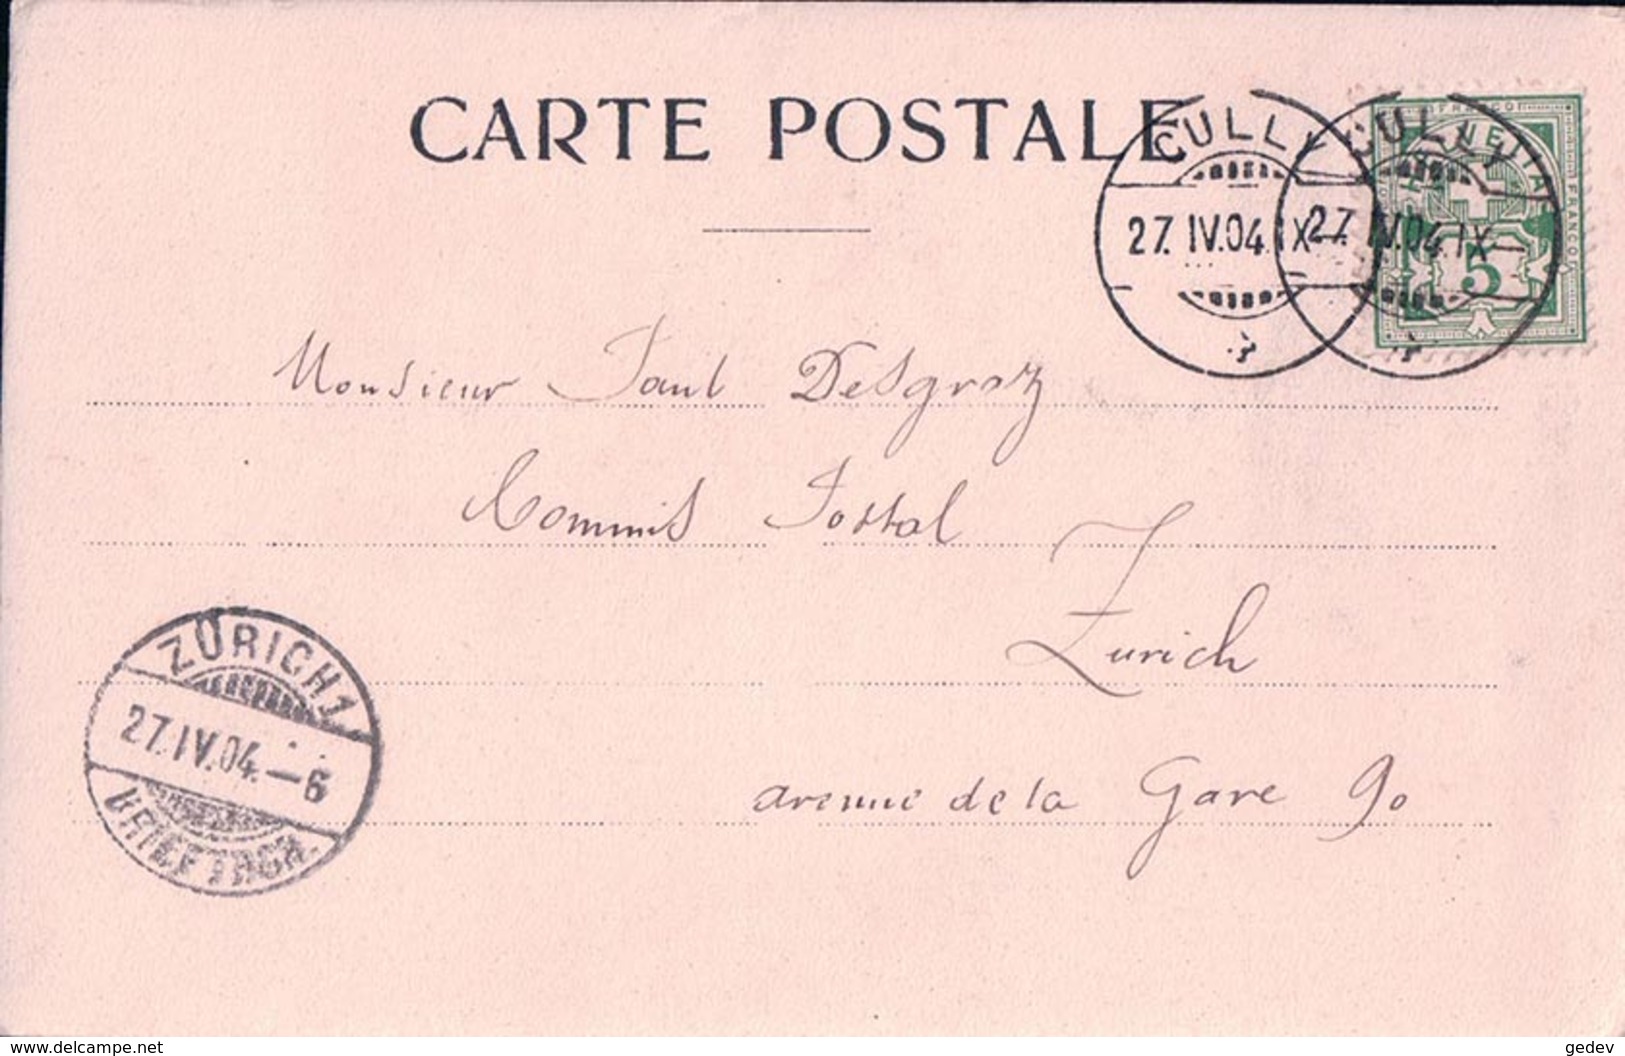 CARTE POSTALE
CULLY
27.IV.04.IX—
CULLY
27.IV.04.IX—
FRANCO
HELVETIA
FRANCO
5
Monsieur Paul Desgraz
Commis Postal
Zurich
avenue de la Gare 90
ZÜRICH 1
27.IV.04.—6
BRIEFTRGR.
www.delcampe.net
gedev